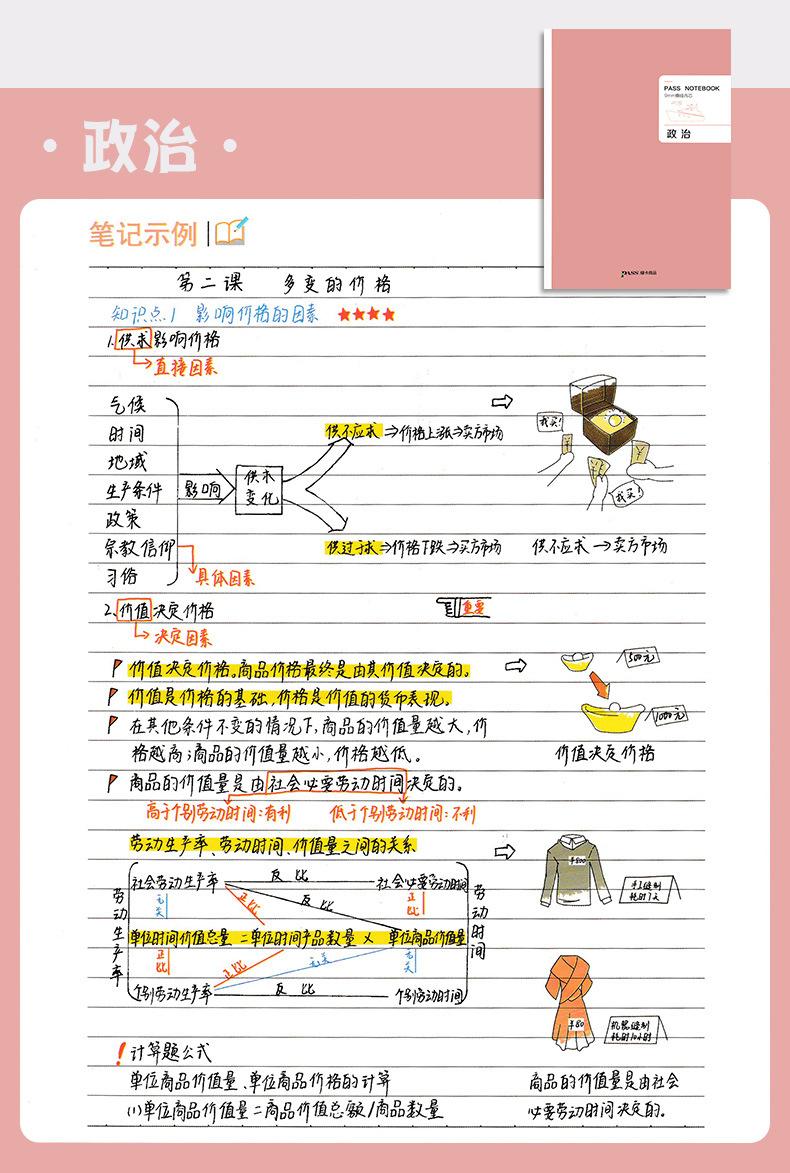 PASS NOTEBOOK
政治
PASS 绿卡商品
·政治·
笔记示例
第二课 多变的价格
知识点1 影响价格的因素 ★★★★
1.供求影响价格
直接因素
气候
时间
地域
生产条件
政策
宗教信仰
习俗
影响
供求变化
具体因素
供不应求⇒价格上涨⇒卖方市场
供过于求⇒价格下跌⇒买方市场
我买!
¥
¥
我买!
供不应求→卖方市场
2.价值决定价格
重要
决定因素
价值决定价格。商品价格最终是由其价值决定的。
价值是价格的基础,价格是价值的货币表现。
在其他条件不变的情况下,商品的价值量越大,价
格越高;商品的价值量越小,价格越低。
500元
1000元
价值决定价格
商品的价值量是由社会必要劳动时间决定的。
高于个别劳动时间:有利 低于个别劳动时间:不利
劳动生产率、劳动时间、价值量之间的关系
劳动生产率
社会劳动生产率 反比 社会必要劳动时间
无关 正比 反比 正比
单位时间价值总量=单位时间产品数量×单位商品价值量
正比 正比 无关 无关
个别劳动生产率 反比 个别劳动时间
劳动时间
¥800
手工缝制
耗时7天
¥80
机器缝制
耗时10小时
!计算题公式
单位商品价值量、单位商品价格的计算
(1)单位商品价值量=商品价值总额/商品数量
商品的价值量是由社会
必要劳动时间决定的。